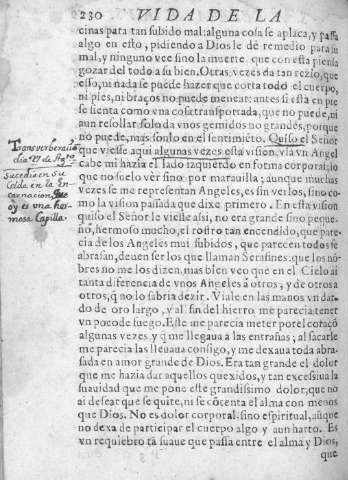 230 VIDA DE LA
cinas para tan subido mal: alguna cosa se aplaca, y passa
algo en esto, pidiendo a Dios le dè remedio para su
mal, y ninguno vee sino la muerte que con esta piensa
gozar del todo a su bien. Otras vezes da tan rezio, que
esso, ni nada se puede hazer que corta todo el cuerpo,
ni pies, ni braços no puede menear: antes si està en pie
se sienta como vna cosa transportada, que no puede, ni
aun resollar, solo da vnos gemidos no grandes, porque
no puede, mas sonlo en el sentimiẽto. Quiso el Señor
que viesse aqui algunas vezes esta vision, via vn Angel
Cabe mi hazia el lado izquierdo en forma corporal; lo
que no suelo vèr sino por marauilla; aunque muchas
vezes se me representan Angeles, es sin verlos, sino co-
mo la vision passada que dixe primero. En esta vision
quiso el Señor le viesse assi, no era grande sino peque-
ño, hermoso mucho, el rostro tan encendido, que pare-
cia de los Angeles mui subidos, que parecen todos se
abrasan, deuen ser los que llaman Serafines: que los nõ-
bres no me los dizen, mas bien veo que en el Cielo ai
tanta diferencia de vnos Angeles à otros, y de otros a
otros, q̃ no lo sabria dezir. Viale en las manos vn dar-
do de oro largo, y al fin del hierro me parecia tener
vn poco de fuego. Este me parecia meter por el coraçõ
algunas vezes, y q̃ me llegaua à las entrañas, al sacarle
me parecia las lleuaua consigo, y me dexaua toda abra-
sada en amor grande de Dios. Era tan grande el dolor
que me hazia dar aquellos quexidos, y tan excessiua la
suauidad que me pone este grandissimo dolor, que no
ai desear que se quite, ni se cõtenta el alma con menos
que Dios. No es dolor corporal, sino espiritual, aũque
no dexa de participar el cuerpo algo y aun harto. Es
vn requiebro tã suaue que passa entre el alma y Dios,
que
Transverberación
dia 27 de Agto
Sucedió en su
Celda en la En
carnacion,
oy es una her-
mosa Capilla.